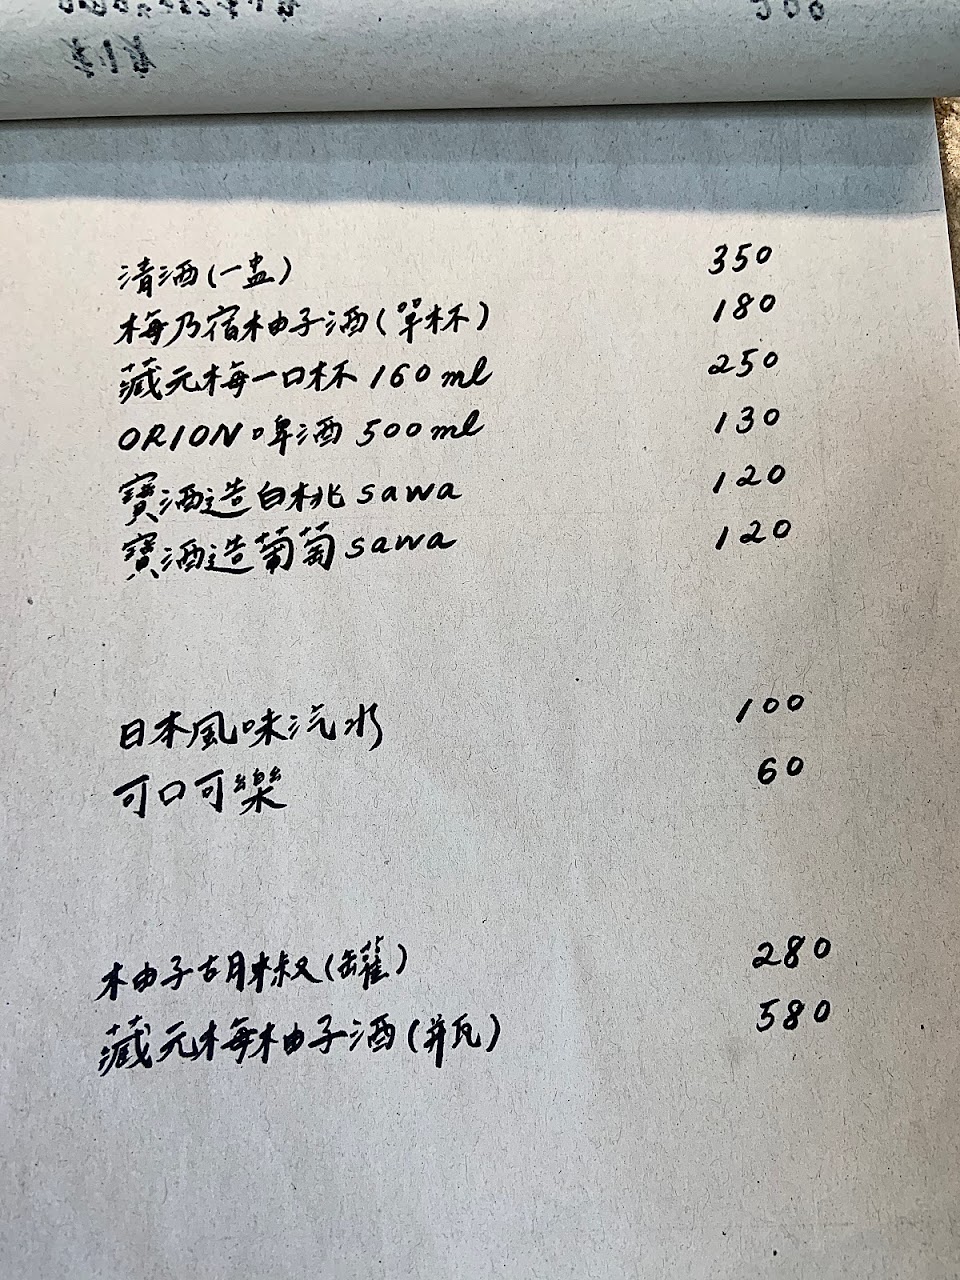 清酒(一盅) 350
梅乃宿柚子酒(單杯) 180
藏元梅一口杯 160ml 250
ORION啤酒 500ml 130
寶酒造白桃sawa 120
寶酒造葡萄sawa 120
日本風味汽水 100
可口可樂 60
柚子胡椒(罐) 280
藏元梅柚子酒(瓶) 580